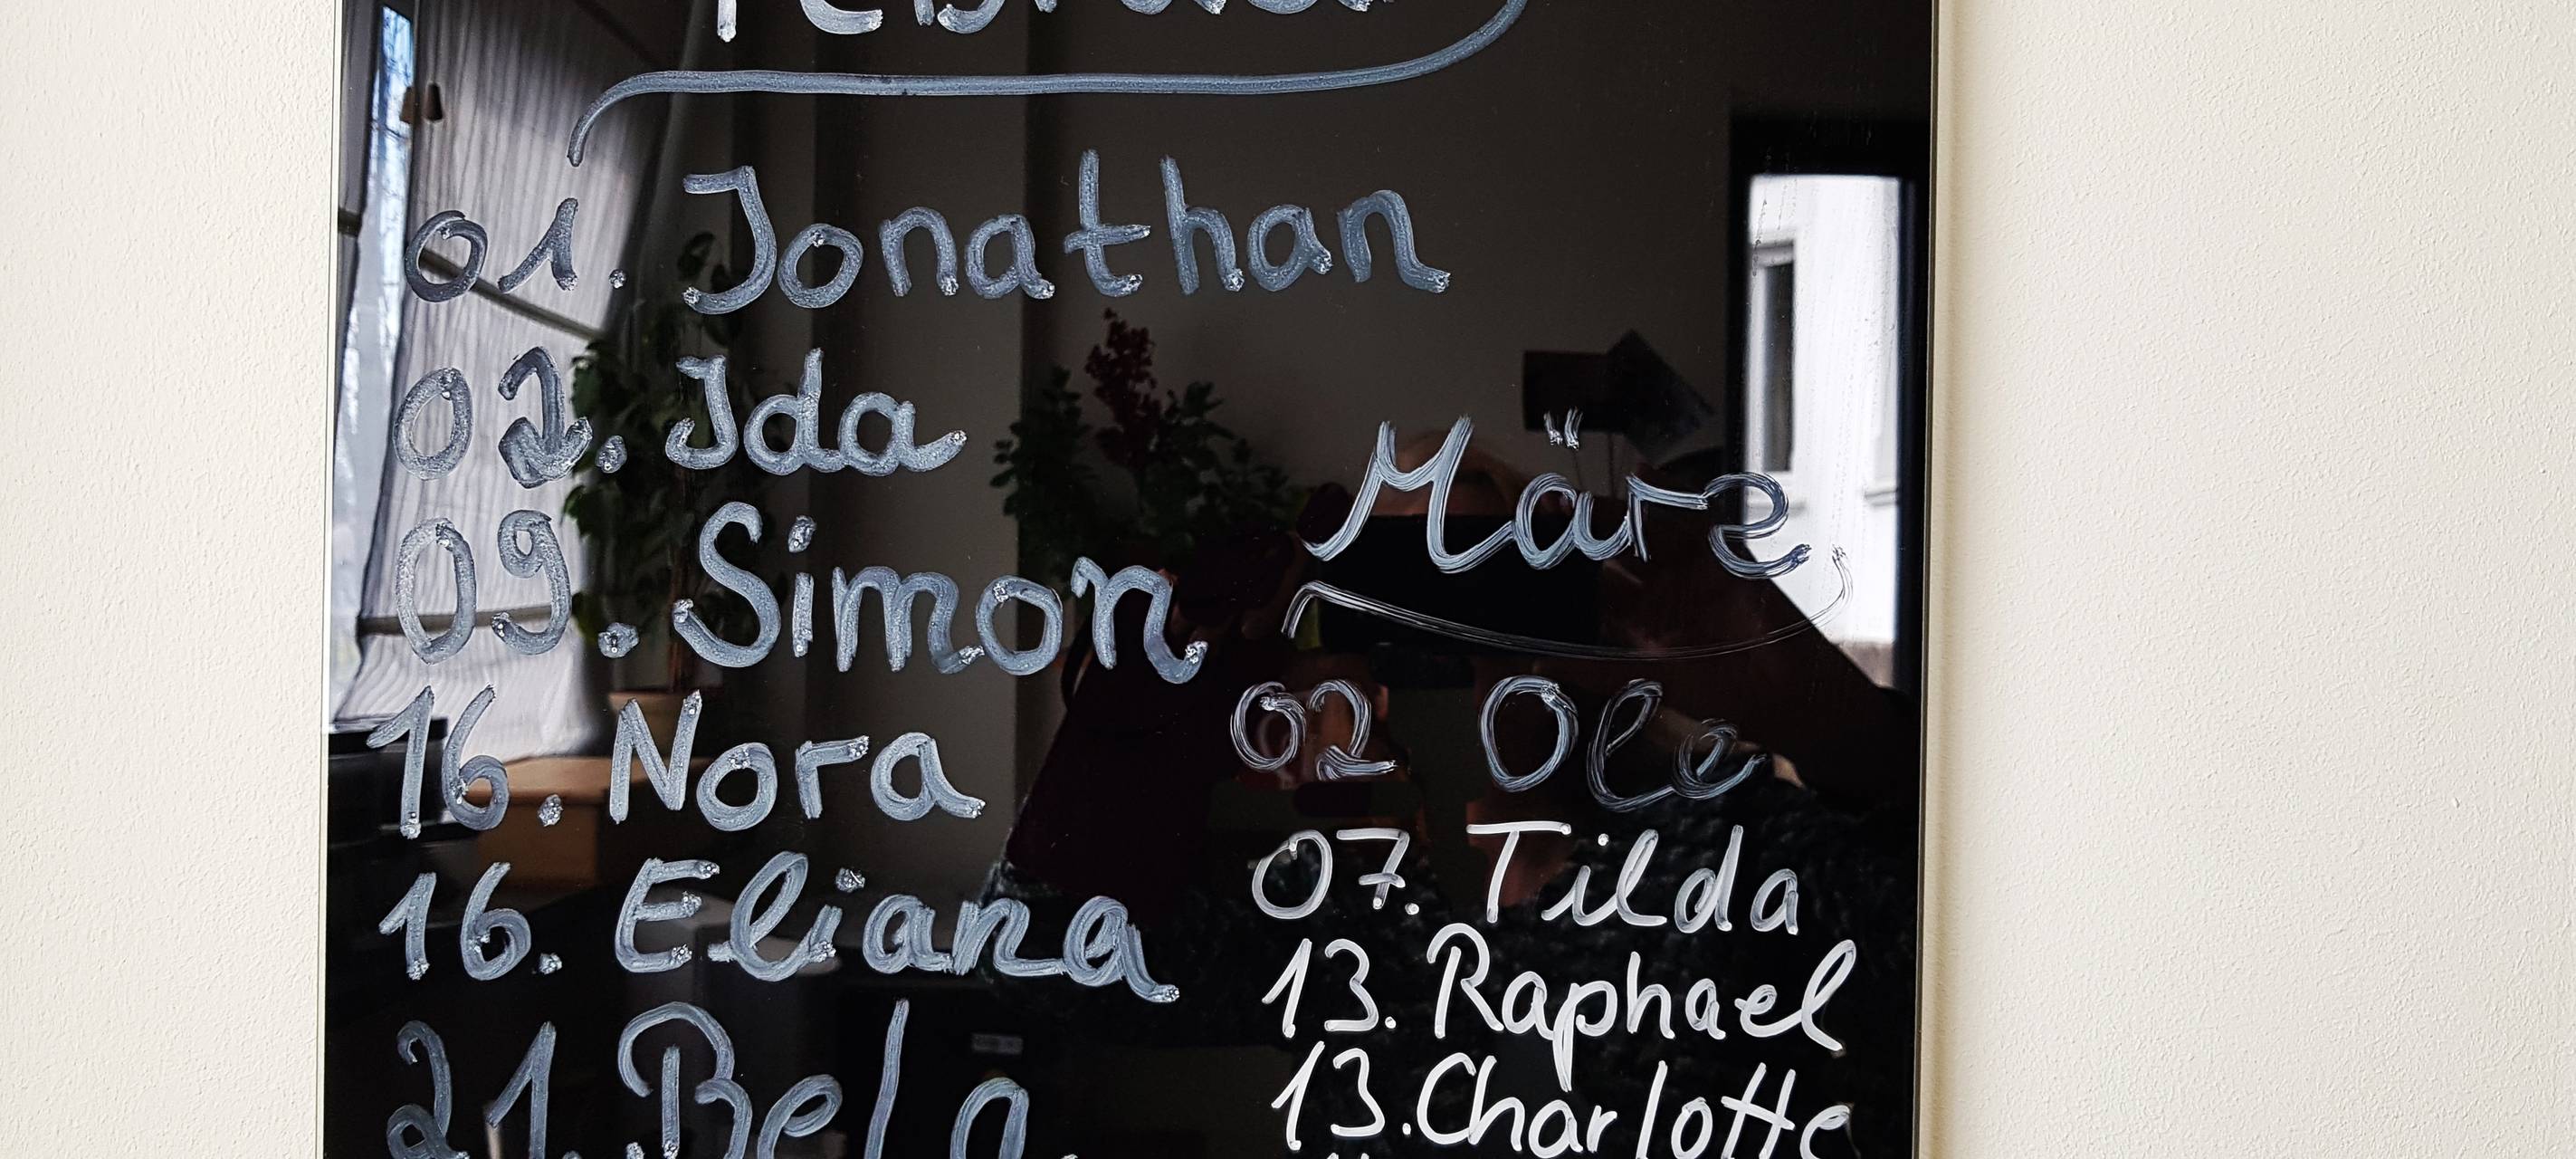 Februar
01. Jonathan
02. Ida
09. Simon
16. Nora
16. Eliana
21. Bela
März
02 Ole
07. Tilda
13. Raphael
13. Charlotte